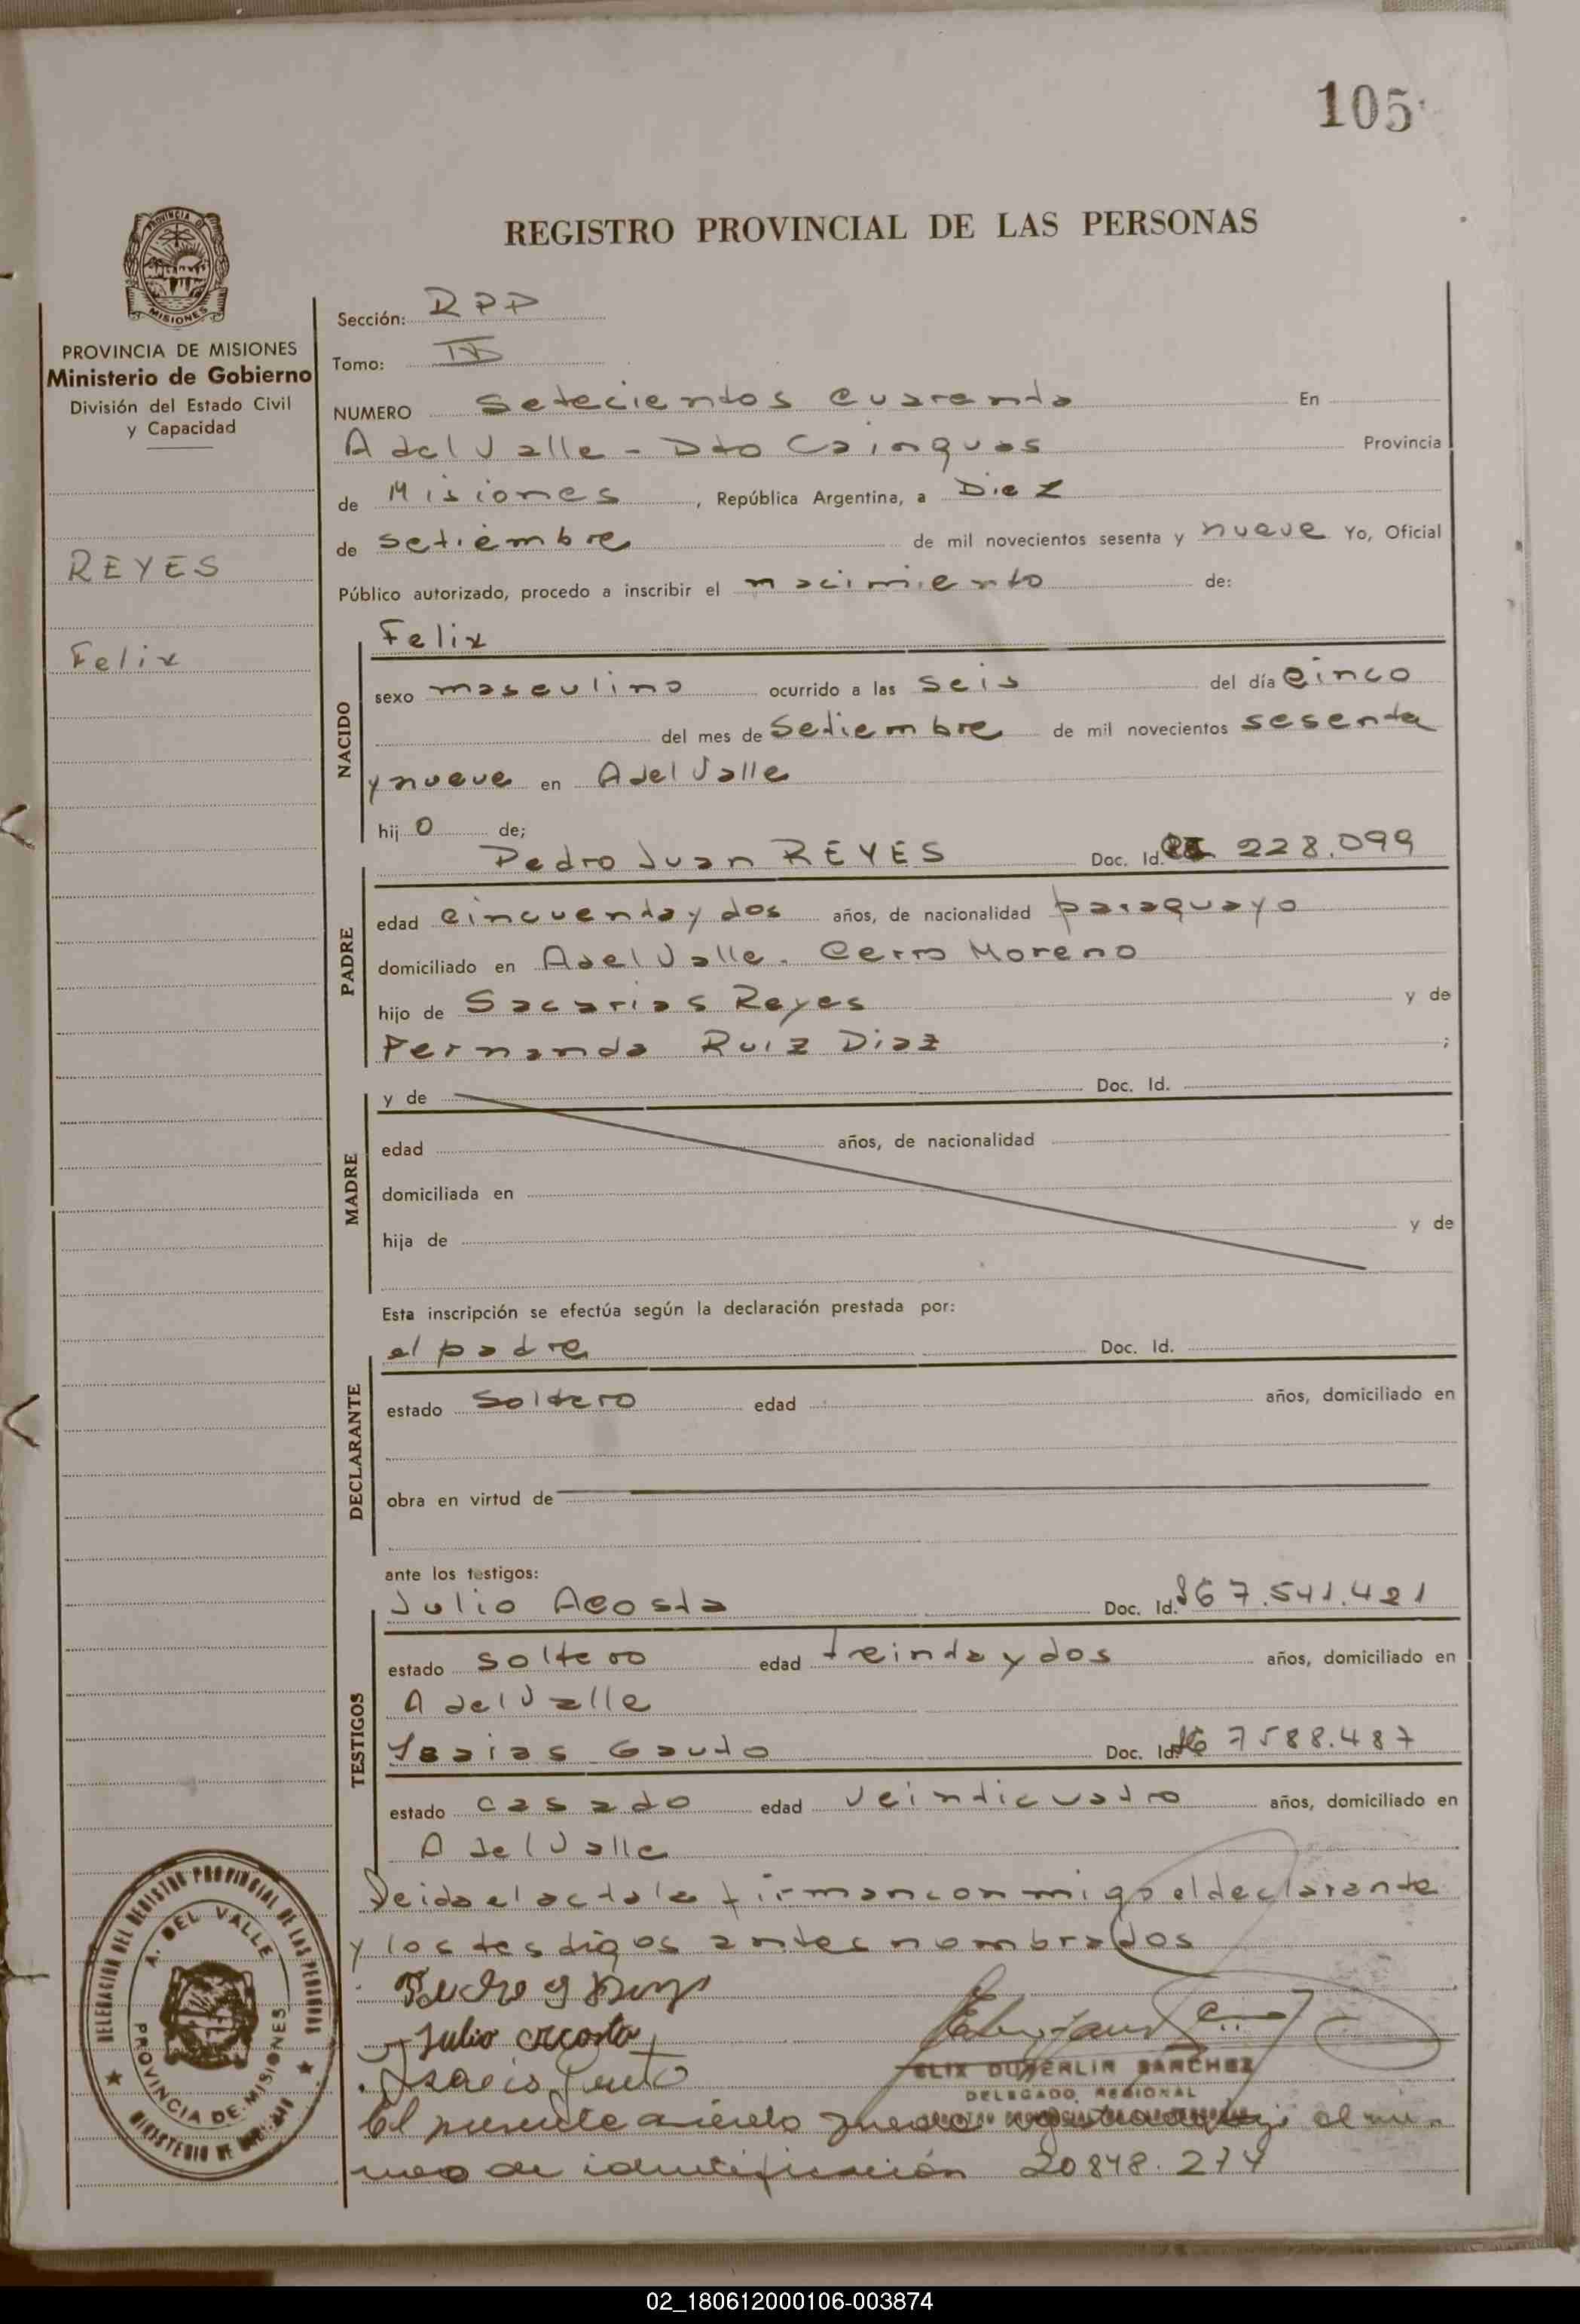 105
REGISTRO PROVINCIAL DE LAS PERSONAS
MISIONES
PROVINCIA DE MISIONES
Ministerio de Gobierno
División del Estado Civil
y Capacidad
REYES
Felix
Sección: RPP
Tomo: IV
NUMERO Setecientos cuarenta En
A del Valle - Dto Cainguas Provincia
de Misiones, República Argentina, a Diez
de setiembre de mil novecientos sesenta y nueve Yo, Oficial
Público autorizado, procedo a inscribir el nacimiento de:
NACIDO
Felix
sexo masculino ocurrido a las seis del día cinco
del mes de Setiembre de mil novecientos sesenta
y nueve en A del Valle
hijo de;
PADRE
Pedro Juan REYES Doc. Id. 228.099
edad cincuenta y dos años, de nacionalidad paraguayo
domiciliado en A del Valle. Cerro Moreno
hijo de Sacarias Reyes y de
Fernanda Ruiz Diaz ;
MADRE
y de Doc. Id.
edad años, de nacionalidad
domiciliada en
hija de y de
Esta inscripción se efectúa según la declaración prestada por:
DECLARANTE
el padre Doc. Id.
estado soltero edad años, domiciliado en
obra en virtud de
ante los testigos:
TESTIGOS
Julio Acosta Doc. Id. 7.541.421
estado soltero edad treinta y dos años, domiciliado en
A del Valle
Isaias Gauto Doc. Id. 7588.487
estado casado edad veinticuatro años, domiciliado en
A del Valle
Leida el acta la firman conmigo el declarante
y los testigos antes nombrados
Julio Acosta
Isaias Gauto
FELIX DUBERLIR SANCHEZ
DELEGADO REGIONAL
El presente asiento queda al nu-
mero de identificación 20848.274
DELEGACION DEL REGISTRO PROVINCIAL DE LAS PERSONAS
A. DEL VALLE
PROVINCIA DE MISIONES
MINISTERIO DE
02_180612000106-003874